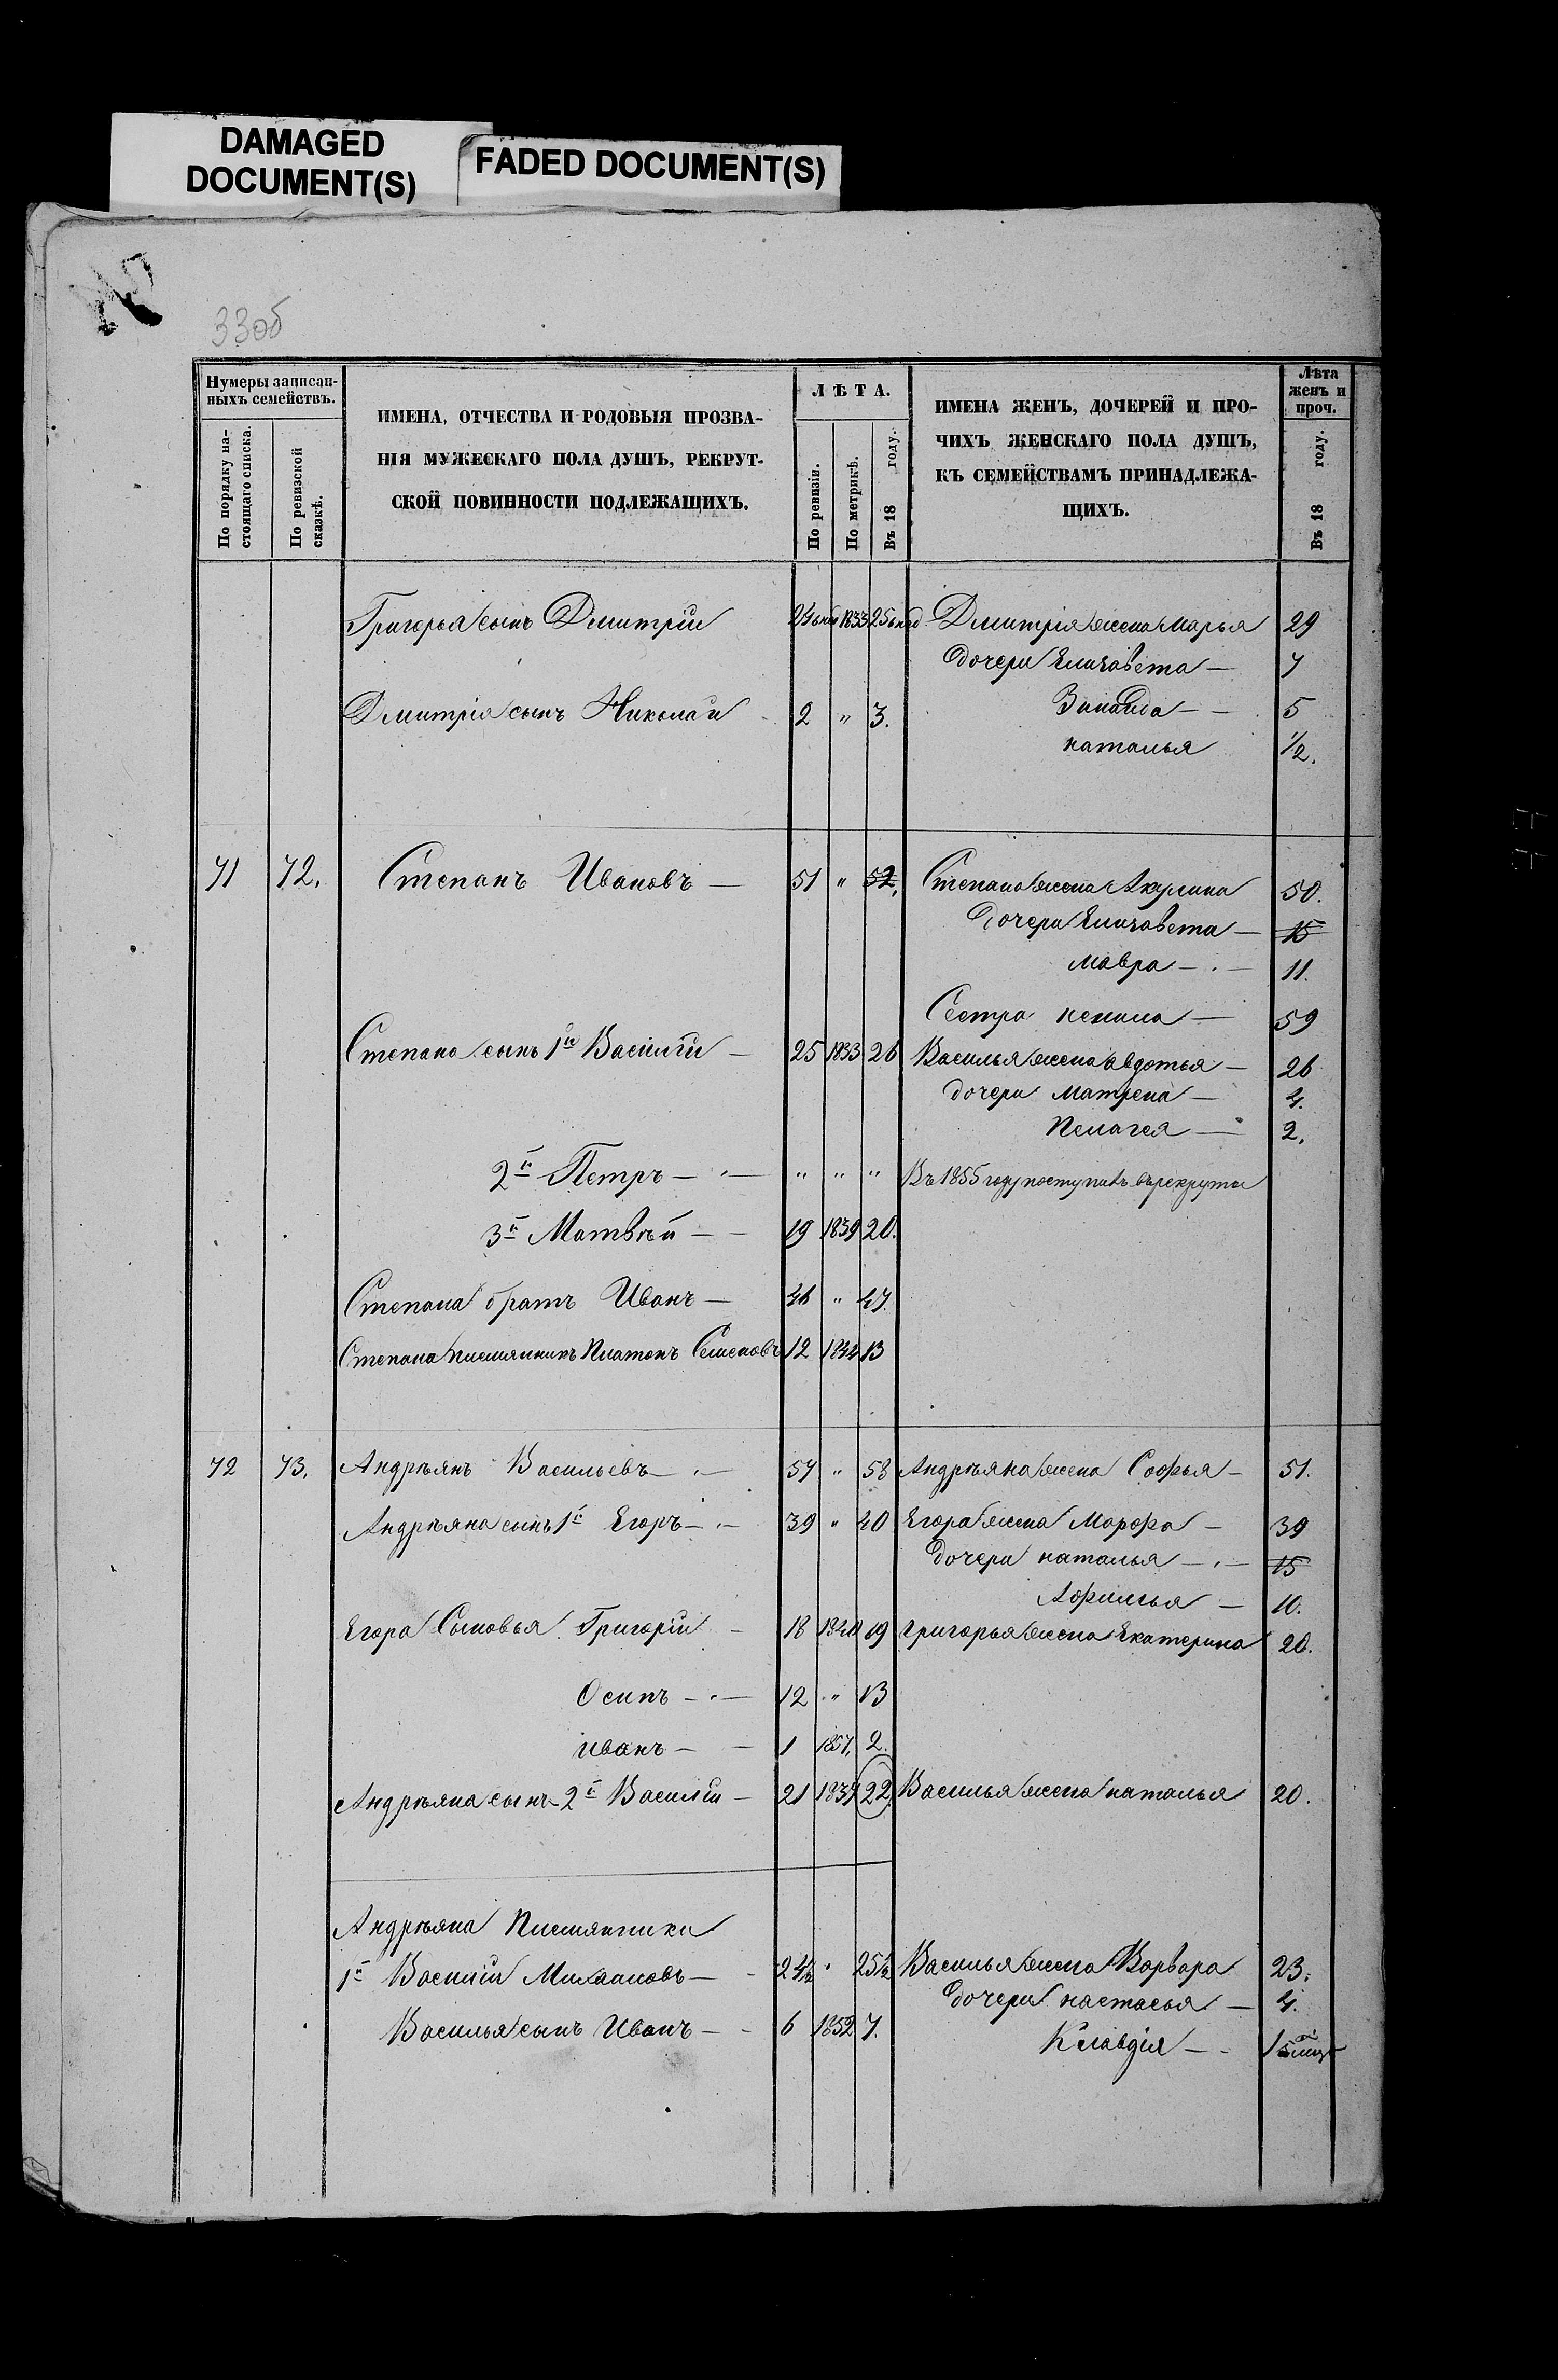 DAMAGED
DOCUMENT(S)
FADED DOCUMENT(S)
33об
Нумеры записан-
ныхъ семействъ.
По порядку на-
стоящаго списка.
По ревизской
сказкѣ.
ИМЕНА, ОТЧЕСТВА И РОДОВЫЯ ПРОЗВА-
НІЯ МУЖЕСКАГО ПОЛА ДУШЪ, РЕКРУТ-
СКОЙ ПОВИННОСТИ ПОДЛЕЖАЩИХЪ.
ЛѢТА.
По ревизіи.
По метрикѣ.
Въ 18 году.
ИМЕНА ЖЕНЪ, ДОЧЕРЕЙ И ПРО-
ЧИХЪ ЖЕНСКАГО ПОЛА ДУШЪ,
КЪ СЕМЕЙСТВАМЪ ПРИНАДЛЕЖА-
ЩИХЪ.
Лѣта
женъ и
проч.
Въ 18 году.
Григорья сынъ Дмитрій 1833 Дмитрія жена Марья 29
дочери Елизавета — 7
Дмитрія сынъ Николай 2 " 3. Зинаида — — 5
наталья 1/2.
71 72. Степанъ Ивановъ — 51 " 52. Степана жена Акулина 50.
Дочери Елизавета — 15
Мавра — 11.
Сестра — 59
Степана сынъ 1й Василій — 25 1833 26 Василья жена авдотья — 26
дочери Матрена — 4.
Пелагея — 2.
2й Петръ — — " " " Въ 1855 году поступилъ въ рекруты
3й Матвѣй — — 19 1839 20.
Степана братъ Иванъ — 46 " 47.
Степана племянникъ Платонъ Семеновъ 12 1844 13
72 73. Андреянъ Васильевъ — — 57 " 58 Андреяна жена Софья — 51.
Андреяна сынъ 1й Егоръ — — 39 " 40 Егора жена Марфа — 39
дочери наталья — — 15
Афимья — 10.
Егора Сыновья Григорій — 18 1840 19 Григорья жена Екатерина 20.
Осипъ — — 12 " 13
иванъ — — 1 1857. 2.
Андреяна сынъ 2й Василій — 21 1837 22. Василья жена наталья 20.
Андреяна Племянники
1й Василій — 24½ " 25½ Василья жена Варвара 23.
дочери настасья — 4.
Василья сынъ Иванъ — — 6 1852 7.
Клавдія — —